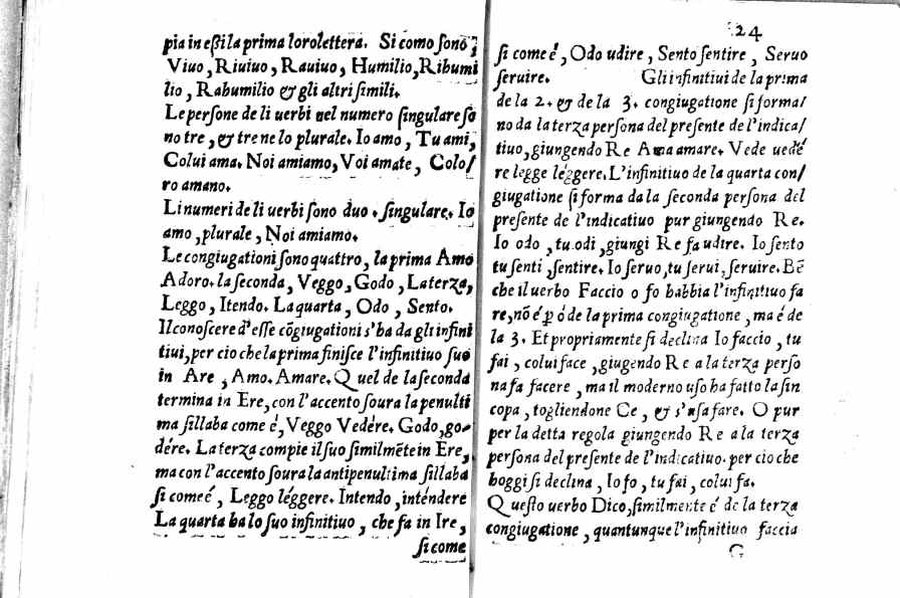 pia in esti la prima loro lettera. Si como sono,
Viuo, Riuiuo, Rauiuo, Humilio, Ribumi
lio, Rabumilio & gli altri simili.
Le persone de li uerbi nel numero singulare so
no tre, & tre ne lo plurale. Io amo, Tu ami,
Colui ama. Noi amiamo, Voi amate, Colo/
ro amano.
Li numeri de li uerbi sono duo. singulare. Io
amo, plurale, Noi amiamo.
Le congiugationi sono quattro, la prima Amo
Adoro. la seconda, Veggo, Godo, La terza,
Leggo, Itendo. La quarta, Odo, Sento.
Il conoscere d'esse cõgiugationi s'ha da gli infini
tiui, per cio che la prima finisce l'infinitiuo suo
in Are, Amo. Amare. Quel de la seconda
termina in Ere, con l'accento soura la penulti
ma sillaba come é, Veggo Vedére. Godo, go-
dére. La terza compie il suo similmẽte in Ere,
ma con l'accento soura la antipenultima sillaba
si come é, Leggo léggere. Intendo, inténdere
La quarta ha lo suo infinitiuo, che fa in Ire,
si come
24
si come é, Odo udire, Sento sentire, Seruo
seruire. Gli infinitiui de la prima
de la 2. & de la 3. congiugatione si forma/
no da la terza persona del presente de l'indica/
tiuo, giungendo Re Ama amare. Vede uedé
re legge léggere. L'infinitiuo de la quarta con/
giugatione si forma da la seconda persona del
presente de l'indicatiuo pur giungendo Re.
Io odo, tu odi, giungi Re fa udire. Io sento
tu senti, sentire. Io seruo, tu serui, seruire. Bẽ
che il uerbo Faccio o fo habbia l'infinitiuo fa
re, nõ é p̃ ó de la prima congiugatione, ma é de
la 3. Et propriamente si declina Io faccio, tu
fai, colui face, giugendo Re a la terza perso
na fa facere, ma il moderno uso ha fatto la sin
copa, togliendone Ce, & s'usa fare. O pur
per la detta regola giungendo Re a la terza
persona del presente de l'indicatiuo. per cio che
hoggi si declina, Io fo, tu fai, colui fa.
Questo uerbo Dico, similmente é de la terza
congiugatione, quantunque l'infinitiuo faccia
G